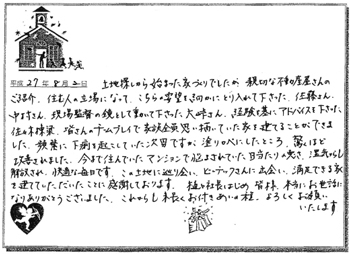 平成 27年 8月 2日
土地探しから始まった家づくりでしたが 親切な不動産屋さんの
ご紹介、住む人の立場になって、こちらの要望を
とり入れて下さった、佐藤さん、
中さん、現場監督の鏡として動いて下さった大崎さん、経験豊にアドバイスを下さった
皆さんのチームプレイで家族全員思い描いていた家を建てることができま
した。頻繁に下痢を起こしていた次男ですが 塗りかべにしたところ、驚くほど
改善されました。今まで住んでいたマンションで悩まされていた日当たりの悪さ、湿気から
解放され、快適な毎日です。この土地に巡り会い、
さんに出会い、満足できる家
を建てていただいたことに感謝しております。
社長はじめ 皆様、本当にお世話に
なりありがとうございました。これからも末長くお付きあいの程、よろしくお願い
いたします